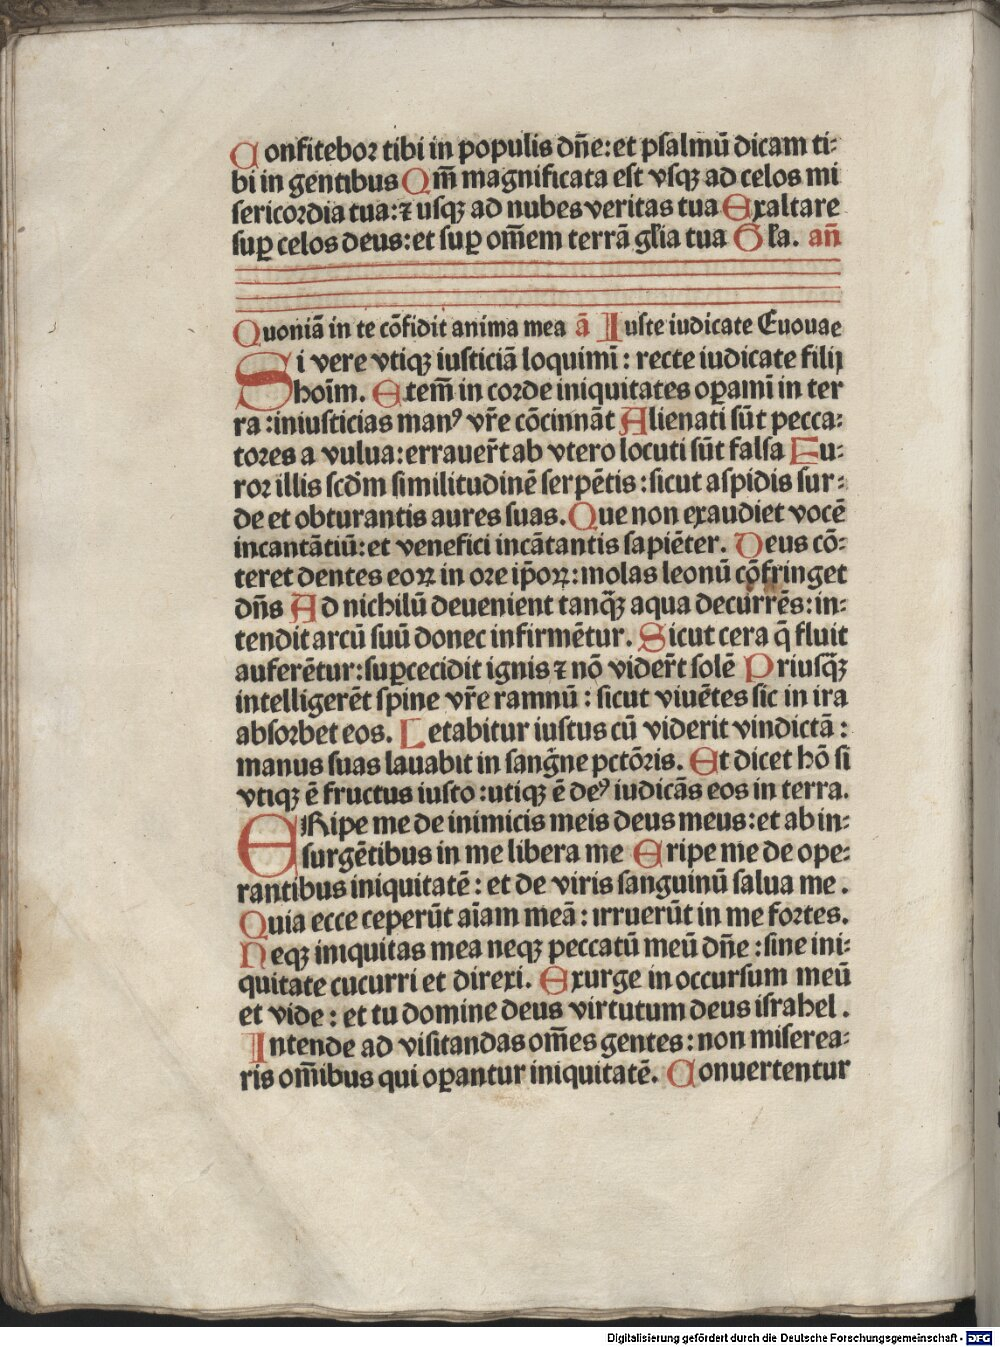 Confitebor tibi in populis dn̄e: et psalmū dicam ti⸗
bi in gentibus Qm̄ magnificata est vsqꝫ ad celos mi
sericordia tua: ⁊ usqꝫ ad nubes veritas tua Exaltare
suꝑ celos deus: et suꝑ om̄em terrā gl̄ia tua Gl̄a. an̄
Quoniā in te cōfidit anima mea ā Iuste iudicate Euouae
Si vere vtiqꝫ iusticiā loquimī : recte iudicate filij
hoīm. Etem̄ in corde iniquitates oꝑamī in ter
ra : iniusticias manꝰ vr̄e cōcinnāt Alienati sūt pecca⸗
tores a vulua: errauer̄t ab vtero locuti sūt falsa Fu⸗
ror illis scd̄m similitudinē serpētis : sicut aspidis sur⸗
de et obturantis aures suas. Que non exaudiet vocē
incantātiū: et venefici incātantis sapiēter. Deus cō⸗
teret dentes eoꝝ in ore ip̄oꝝ: molas leonū cōfringet
dn̄s Ad nichilū deuenient tanq̄ꝫ aqua decurrēs: in⸗
tendit arcū suū donec infirmētur. Sicut cera q̄ fluit
auferētur: suꝑcecidit ignis ⁊ nō vider̄t solē Priusq̄ꝫ
intelligerēt spine vr̄e ramnū : sicut viuētes sic in ira
absorbet eos. Letabitur iustus cū viderit vindictā :
manus suas lauabit in sanḡne pctōris. Et dicet hō si
vtiqꝫ ē fructus iusto : utiqꝫ ē deꝰ iudicās eos in terra.
ERipe me de inimicis meis deus meus: et ab in⸗
surgētibus in me libera me Eripe me de ope⸗
rantibus iniquitatē : et de viris sanguinū salua me .
Quia ecce ceperūt aīam meā : irruerūt in me fortes.
Neqꝫ iniquitas mea neqꝫ peccatū meū dn̄e : sine ini⸗
quitate cucurri et direxi. Exurge in occursum meū
et vide : et tu domine deus virtutum deus israhel .
Intende ad visitandas om̄es gentes : non miserea⸗
ris om̄ibus qui oꝑantur iniquitatē. Conuertentur
Digitalisierung gefördert durch die Deutsche Forschungsgemeinschaft - DFG